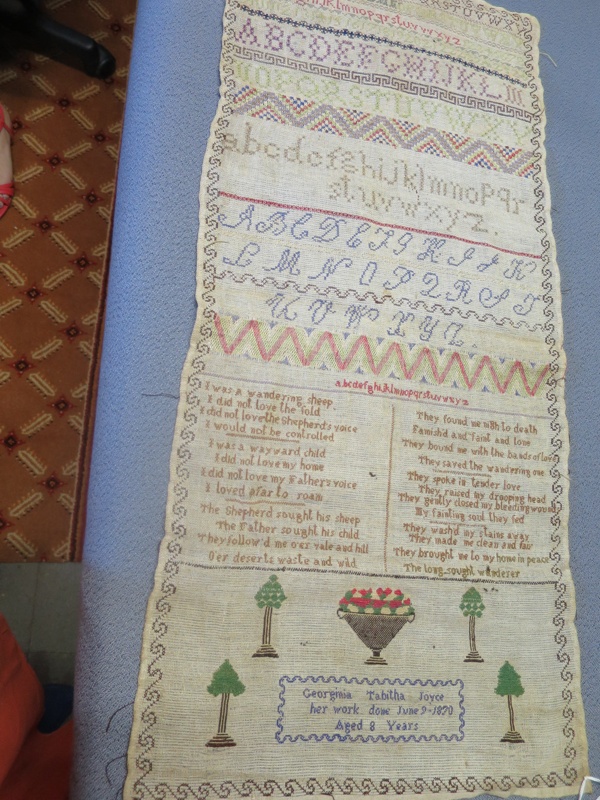 STUVWXYZ
ghijklmnopqrstuvwxyz
ABCDEFGHIJKL
NOPQRSTUVWXY
abcdefghijklmnopqr
stuvwxyz.
A B C D E F G H I J K
L M N O P Q R S T
U V W X Y Z.
abcdefghijklmnopqrstuvwxyz
I was a wandering sheep
I did not love the fold
I did not love the Shepherd's voice
I would not be controlled
I was a wayward child
I did not love my home
I did not love my Fathers voice
I loved afar to roam
The Shepherd sought his sheep
The Father sought his child
They follow'd me o'er vale and hill
O'er deserts waste and wild
They found me nigh to death
Famish'd and faint and lone
They bound me with the bands of love
They saved the wandering one
They spoke in tender love
They raised my drooping head
They gently closed my bleeding wound
My fainting soul they fed
They wash'd my stains away
They made me clean and fair
They brought me to my home in peace
The long sought wanderer
Georginia Tabitha Joyce
her work done June 9-1870
Aged 8 Years